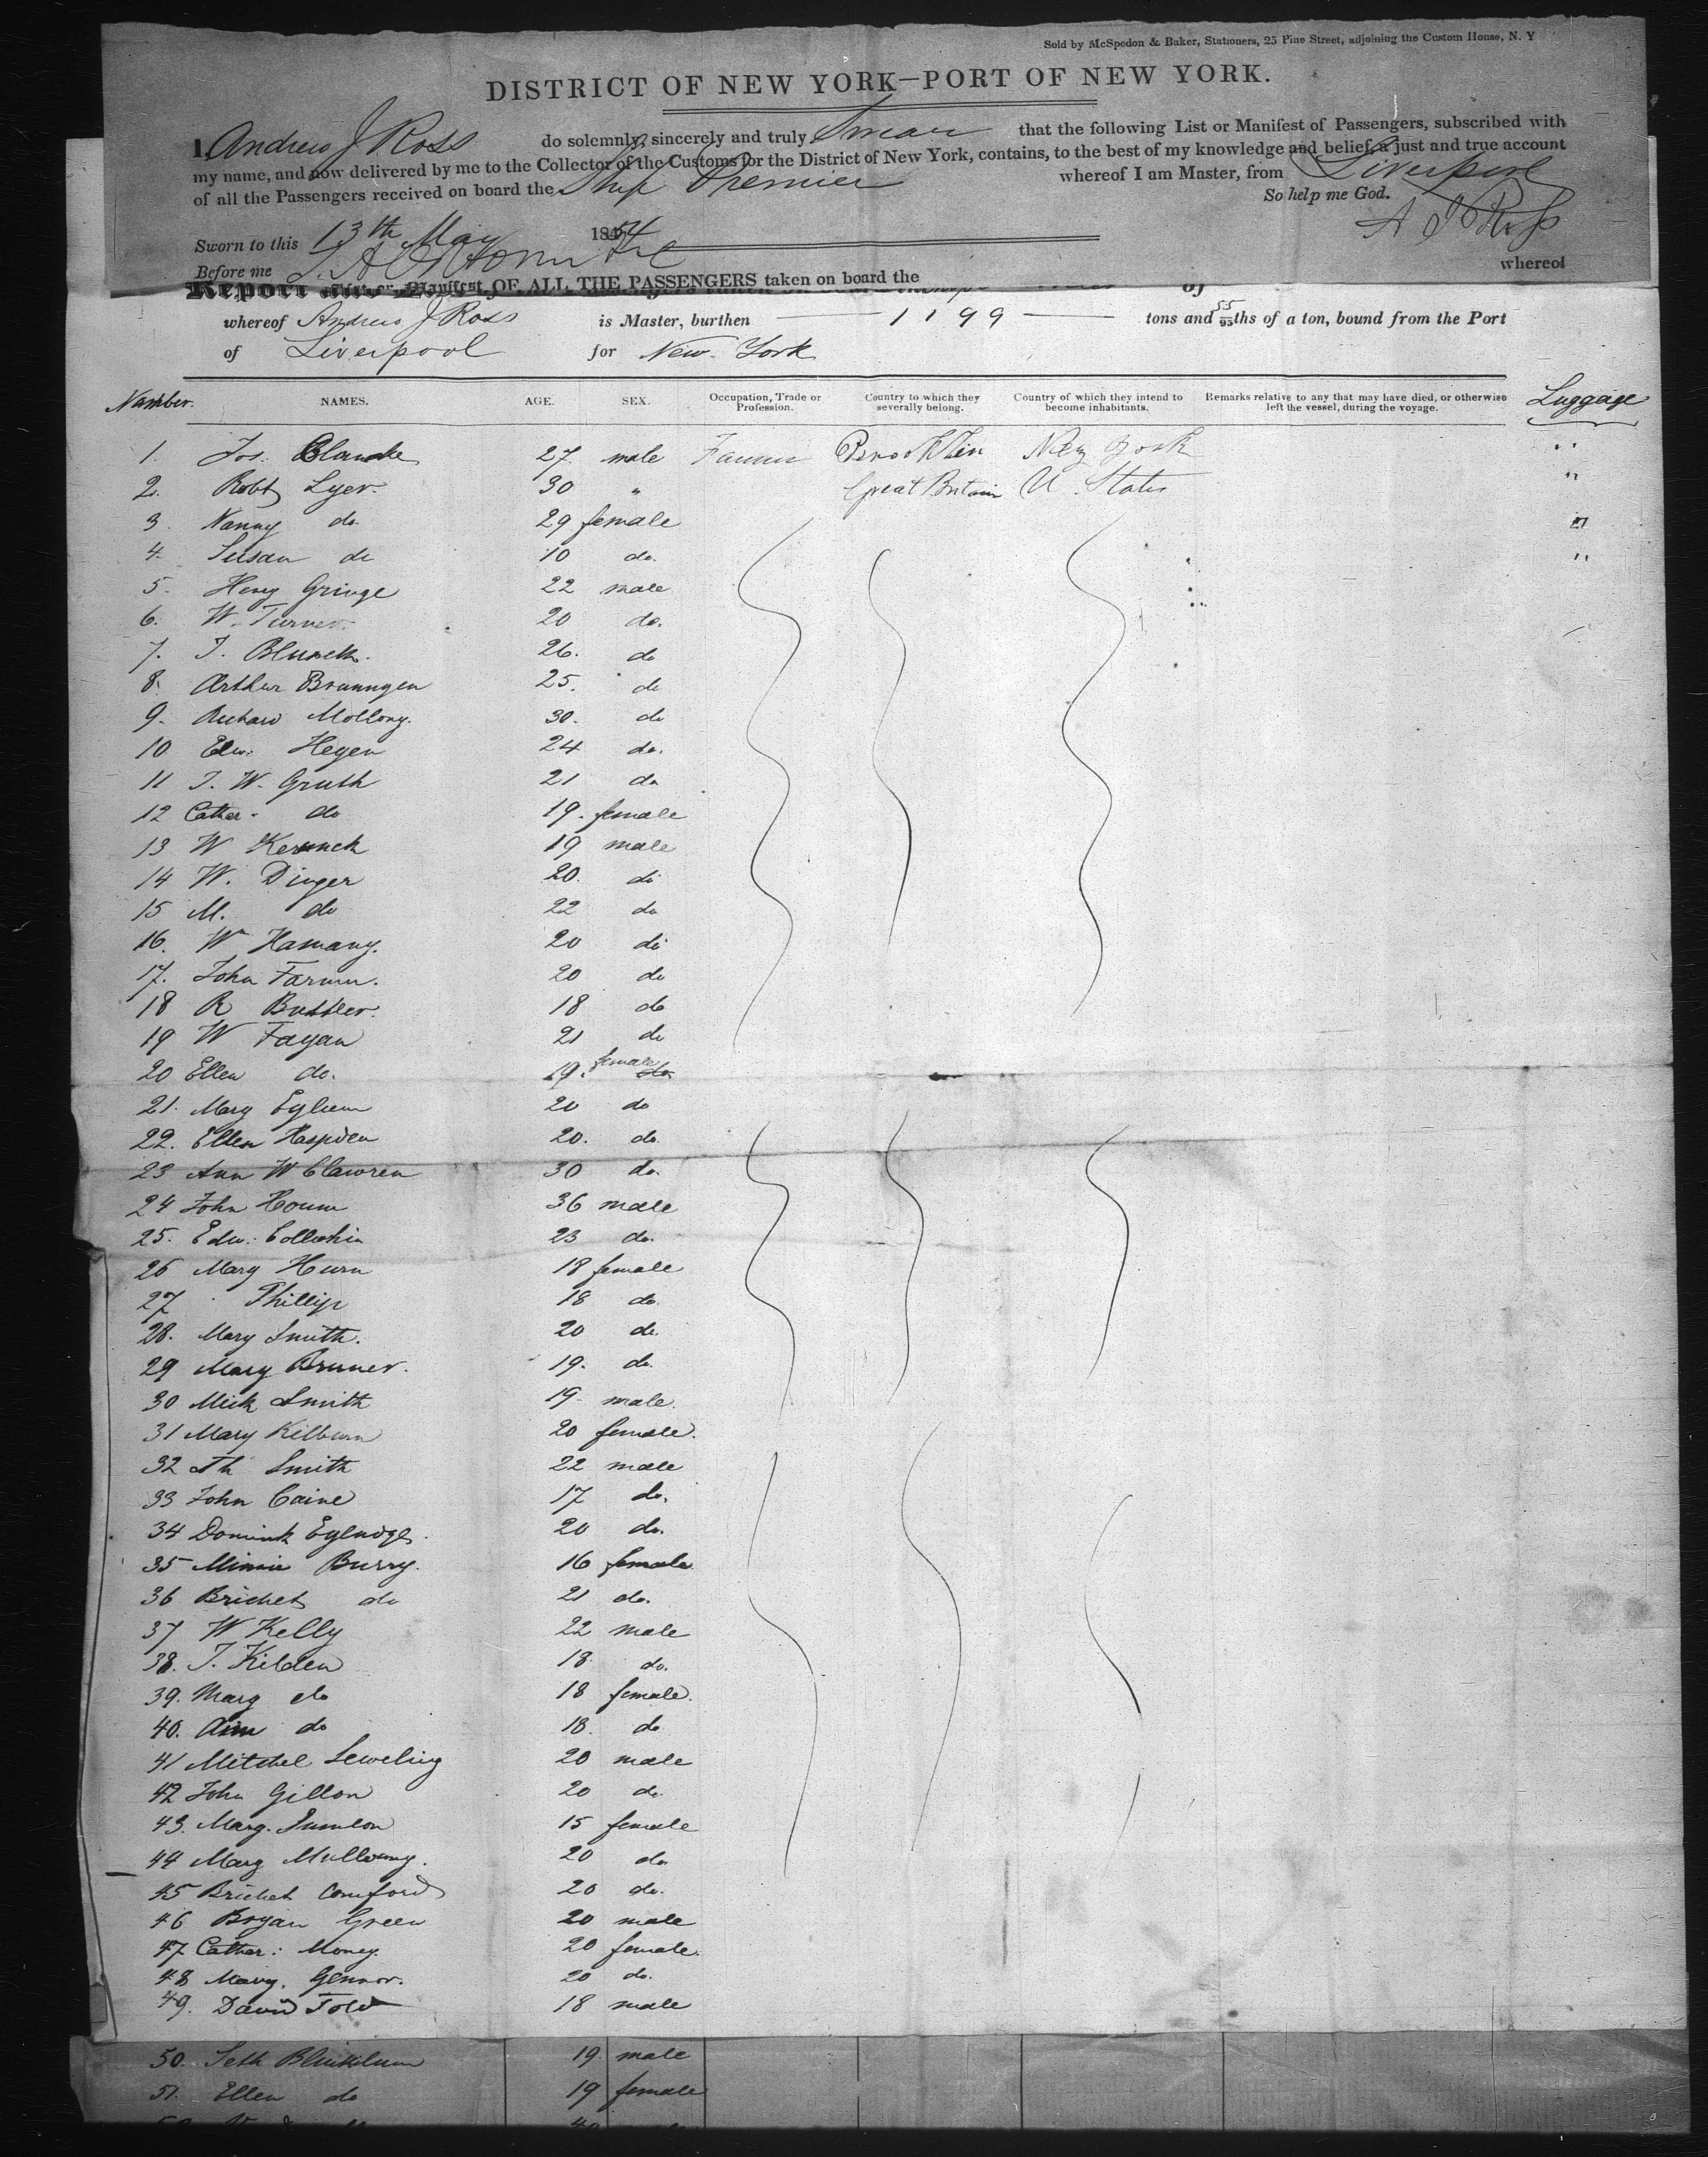 Sold by McSpedon & Baker, Stationers, 25 Pine Street, adjoining the Custom House, N. Y
DISTRICT OF NEW YORK—PORT OF NEW YORK.
I Andrew J Ross do solemnly, sincerely and truly Swear that the following List or Manifest of Passengers, subscribed with
my name, and now delivered by me to the Collector of the Customs for the District of New York, contains, to the best of my knowledge and belief, a just and true account
of all the Passengers received on board the Ship Premier whereof I am Master, from Liverpool
So help me God.
Sworn to this 13th May 1854 A J Ross
Before me
whereof
Report Manifest OF ALL THE PASSENGERS taken on board the
whereof Andrew J Ross is Master, burthen 1199 tons and 55/95ths of a ton, bound from the Port
of Liverpool for New York
Number. NAMES. AGE. SEX. Occupation, Trade or Profession. Country to which they severally belong. Country of which they intend to become inhabitants. Remarks relative to any that may have died, or otherwise left the vessel, during the voyage. Luggage
1. Jos. 27 male Farmer New York "
2. Robt Lyer. 30 " Great Britain U. States "
3. Nanny do. 29 female "
4. Susan do 10 do. "
5. Heny Gringe 22 male
6. W. Turner. 20 do.
7. J. 26. do
8. Arthur Brunnyen 25. do
9. Richard Mollony. 30. do
10 Edw: Heyen 24 do.
11 J. W. Gruth 21 do
12 Cather. do 19. female
13 W 19 male
14 W. Dinger 20. do
15 M. do 22 do
16. Wm Hamany. 20 do
17. John Farmer. 20 do
18 R Buttler. 18 do
19 W Fagan 21 do
20 Ellen do. 19. female
21. Mary 20 do
22. Ellen Haspden 20. do.
23 Ann W Clawren 30 do.
24 John 36 male
25. Edw: 23 do.
26 Mary Hurn 18 female
27 Phillip 18 do.
28. Mary Smith. 20 do.
29 Mary Bruner. 19. do.
30 Mick Smith 19 male.
31 Mary Kilburn 20 female.
32 Th Smith 22 male
33 John Caine 17 do.
34 Dominik 20 do.
35 Minnie Burry. 16 female.
36 Bridget do 21 do.
37 W Kelly 22 male
38. J. Kilden 18 do.
39. Marg do 18 female.
40. Ann do 18. do
41 Mitchel Leweling 20 male
42 John Gillon 20 do.
43. Marg. 15 female
44 Marg 20 do.
45 Bridget Comford 20 do.
46 Bryan Green 20 male
47 Cather: Money. 20 female.
48 Mary. Gennor. 20 do.
49. David Told 18 male
50. Seth 19 male
51. Ellen do 19 female